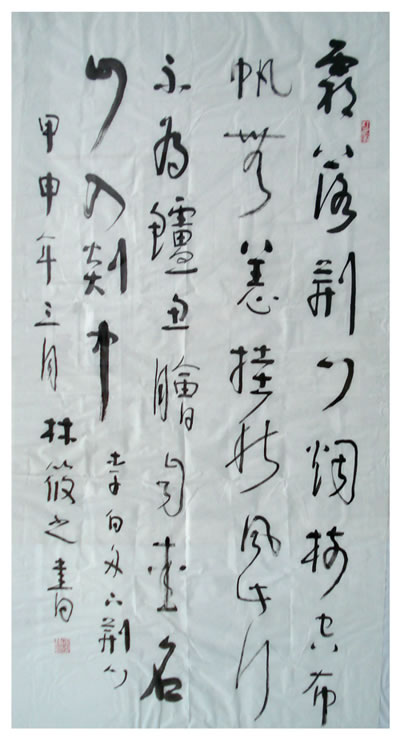 霜落荆门烟树空布
帆無恙挂秋风此行
不為鱸魚膾自愛名
山入剡中 李白秋下荆门
甲申年三月林筱之書